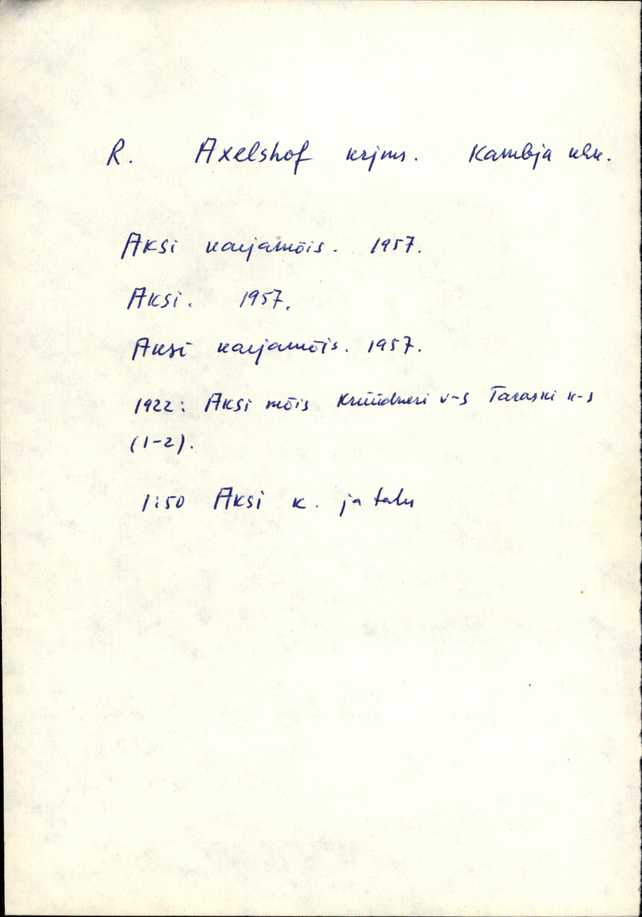 R. Axelshof krjms. Kambja khk.
Aksi karjamõis. 1957.
Aksi. 1957.
Aksi karjamõis. 1957.
1922: Aksi mõis Krüüdneri v-s Taraski k-s
(1-2).
1:50 Aksi k. ja talu